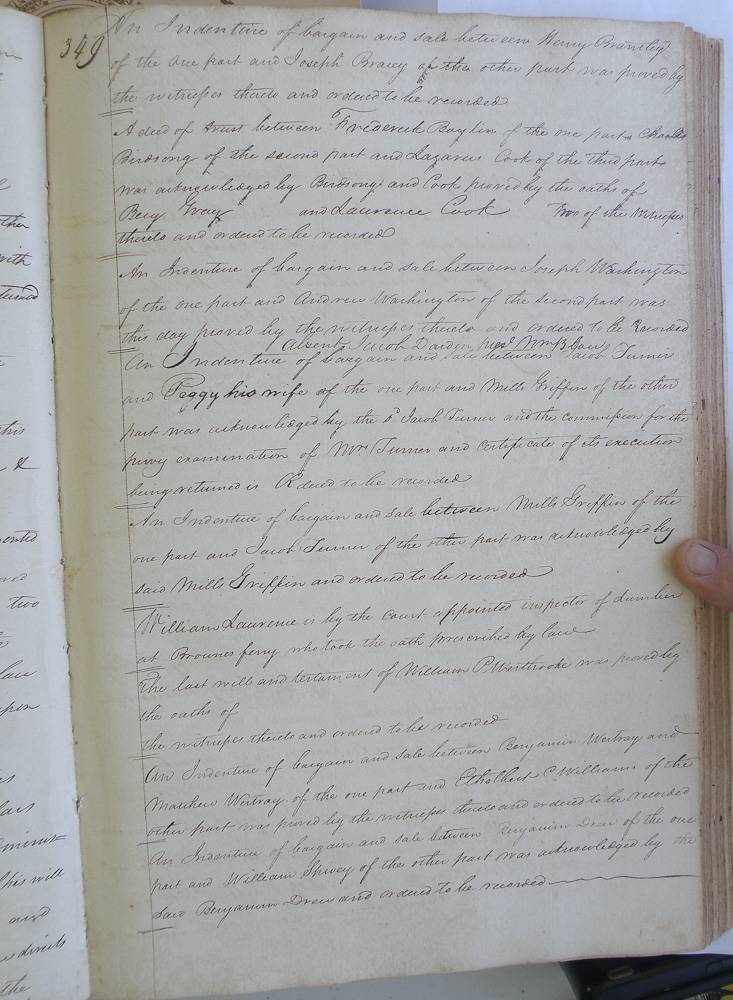 349
An Indenture of bargain and sale between Henry Brantley
of the one part and Joseph Bracey of the other part was proved by
the witnesses thereto and ordered to be recorded
A deed of trust between Frederick Boykin of the one part Charles
Birdsong of the second part and Lazarus Cook of the third part
was acknowledged by Birdsong and Cook proved by the oaths of
Benj Gray and Laurence Cook Two of the witnesses
thereto and ordered to be recorded
An Indenture of bargain and sale between Joseph Washington
of the one part and Andrew Washington of the second part was
this day proved by the witnesses thereto and ordered to be Recorded
Absent Jacob Darden, pres.t Wm B
An Indenture of bargain and sale between Jacob Turner
and Peggy his wife of the one part and Mills Griffin of the other
part was acknowledged by the s.d Jacob Turner and the commission for the
privy examination of Mrs Turner and certificate of its execution
being returned is Rdered to be recorded
An Indenture of bargain and sale between Mills Griffin of the
one part and Jacob Turner of the other part was acknowledged by
said Mills Griffin and ordered to be recorded
William Laurence is by the Court appointed inspector of Lumber
at Brownes ferry who took the oath prescribed by law
The last will and testament of William P. Westbrooke was proved by
the oaths of
the witnesses thereto and ordered to be recorded
An Indenture of bargain and sale between Benjamin Westray and
Matthew Westray of the one part and Ethelbert P. Williams of the
other part was proved by the witnesses thereto and ordered to be recorded
An Indenture of bargain and sale between Benjamin Drew of the one
part and William Shivey of the other part was acknowledged by the
said Benjamin Drew and ordered to be recorded